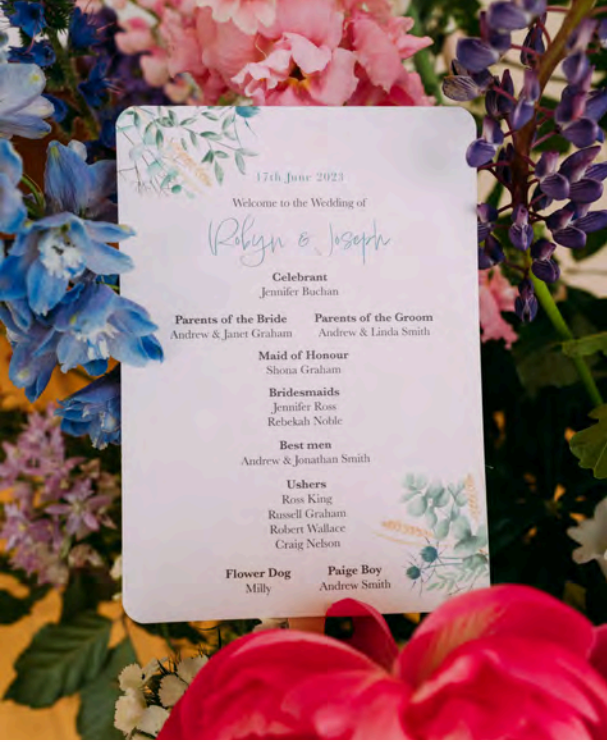 17th June 2023
Welcome to the Wedding of
Robyn & Joseph
Celebrant
Jennifer Buchan
Parents of the Bride Parents of the Groom
Andrew & Janet Graham Andrew & Linda Smith
Maid of Honour
Shona Graham
Bridesmaids
Jennifer Ross
Rebekah Noble
Best men
Andrew & Jonathan Smith
Ushers
Ross King
Russell Graham
Robert Wallace
Craig Nelson
Flower Dog Paige Boy
Milly Andrew Smith